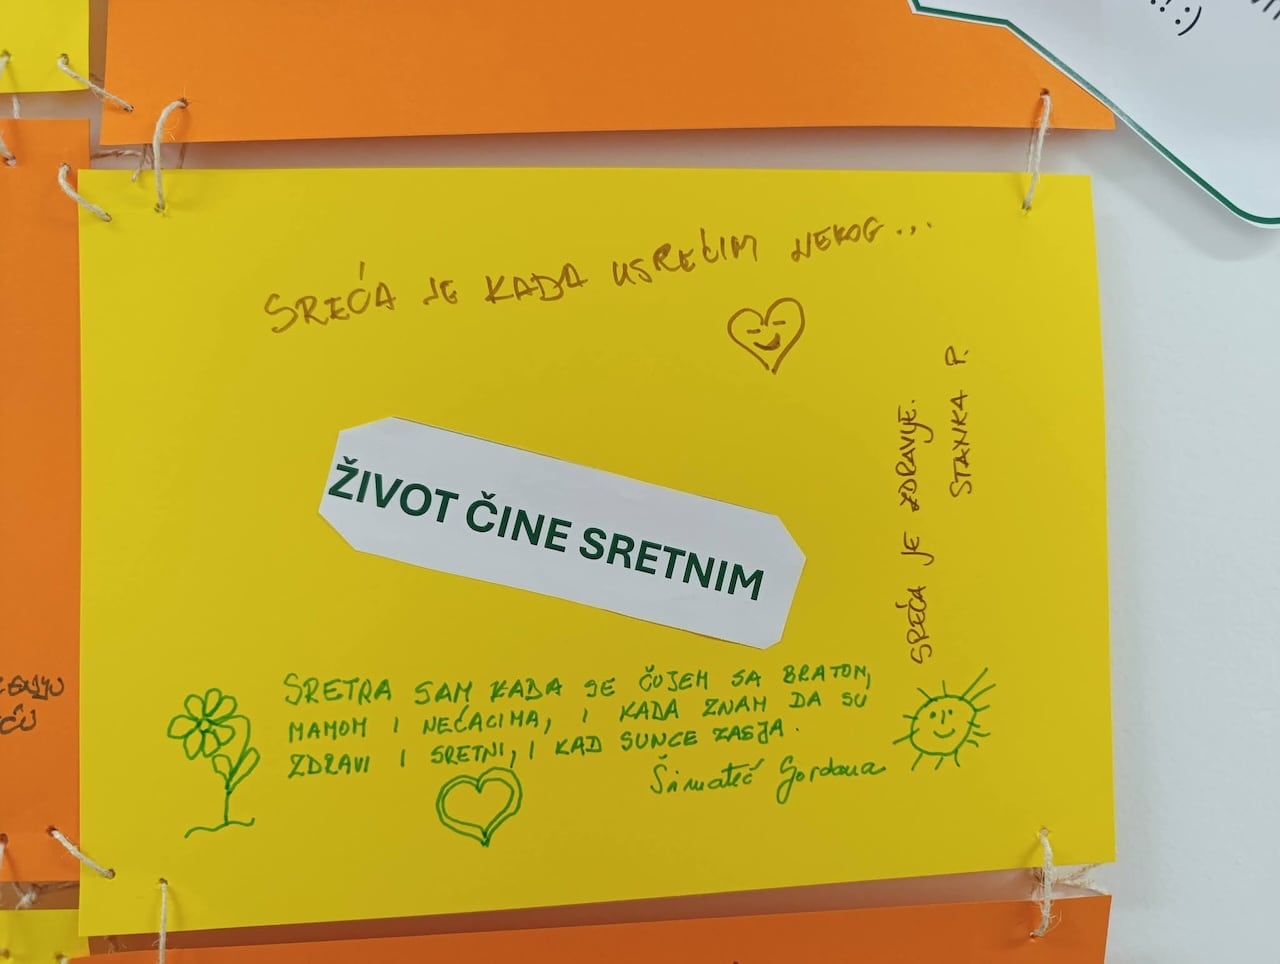 !! :)
SREĆA JE KADA USREĆIM NEKOG...
SREĆA JE ZDRAVJE.
STANKA P.
ŽIVOT ČINE SRETNIM
SRETNA SAM KADA SE ČUJEM SA BRATOM,
MAMOM I NEĆACIMA, I KADA ZNAM DA SU
ZDRAVI I SRETNI, I KAD SUNCE ZASJA.
Gordana